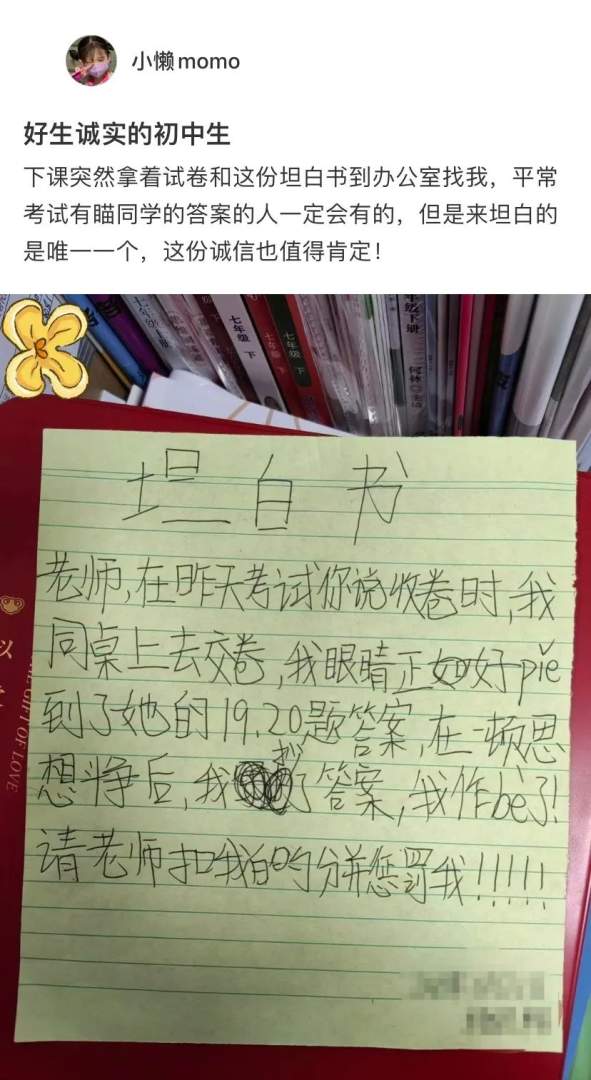 小懒momo
好生诚实的初中生
下课突然拿着试卷和这份坦白书到办公室找我，平常
考试有瞄同学的答案的人一定会有的，但是来坦白的
是唯一一个，这份诚信也值得肯定！
七年级 下
七年级 下
七年级 下
年级下册
THE GIFT OF LOVE
坦白书
老师,在昨天考试你说收卷时,我
同桌上去交卷,我眼睛正好piě
到了她的19.20题答案,在一顿思
想斗争后,我抄了答案,我作bì了!
请老师扣我的分并惩罚我!!!!!